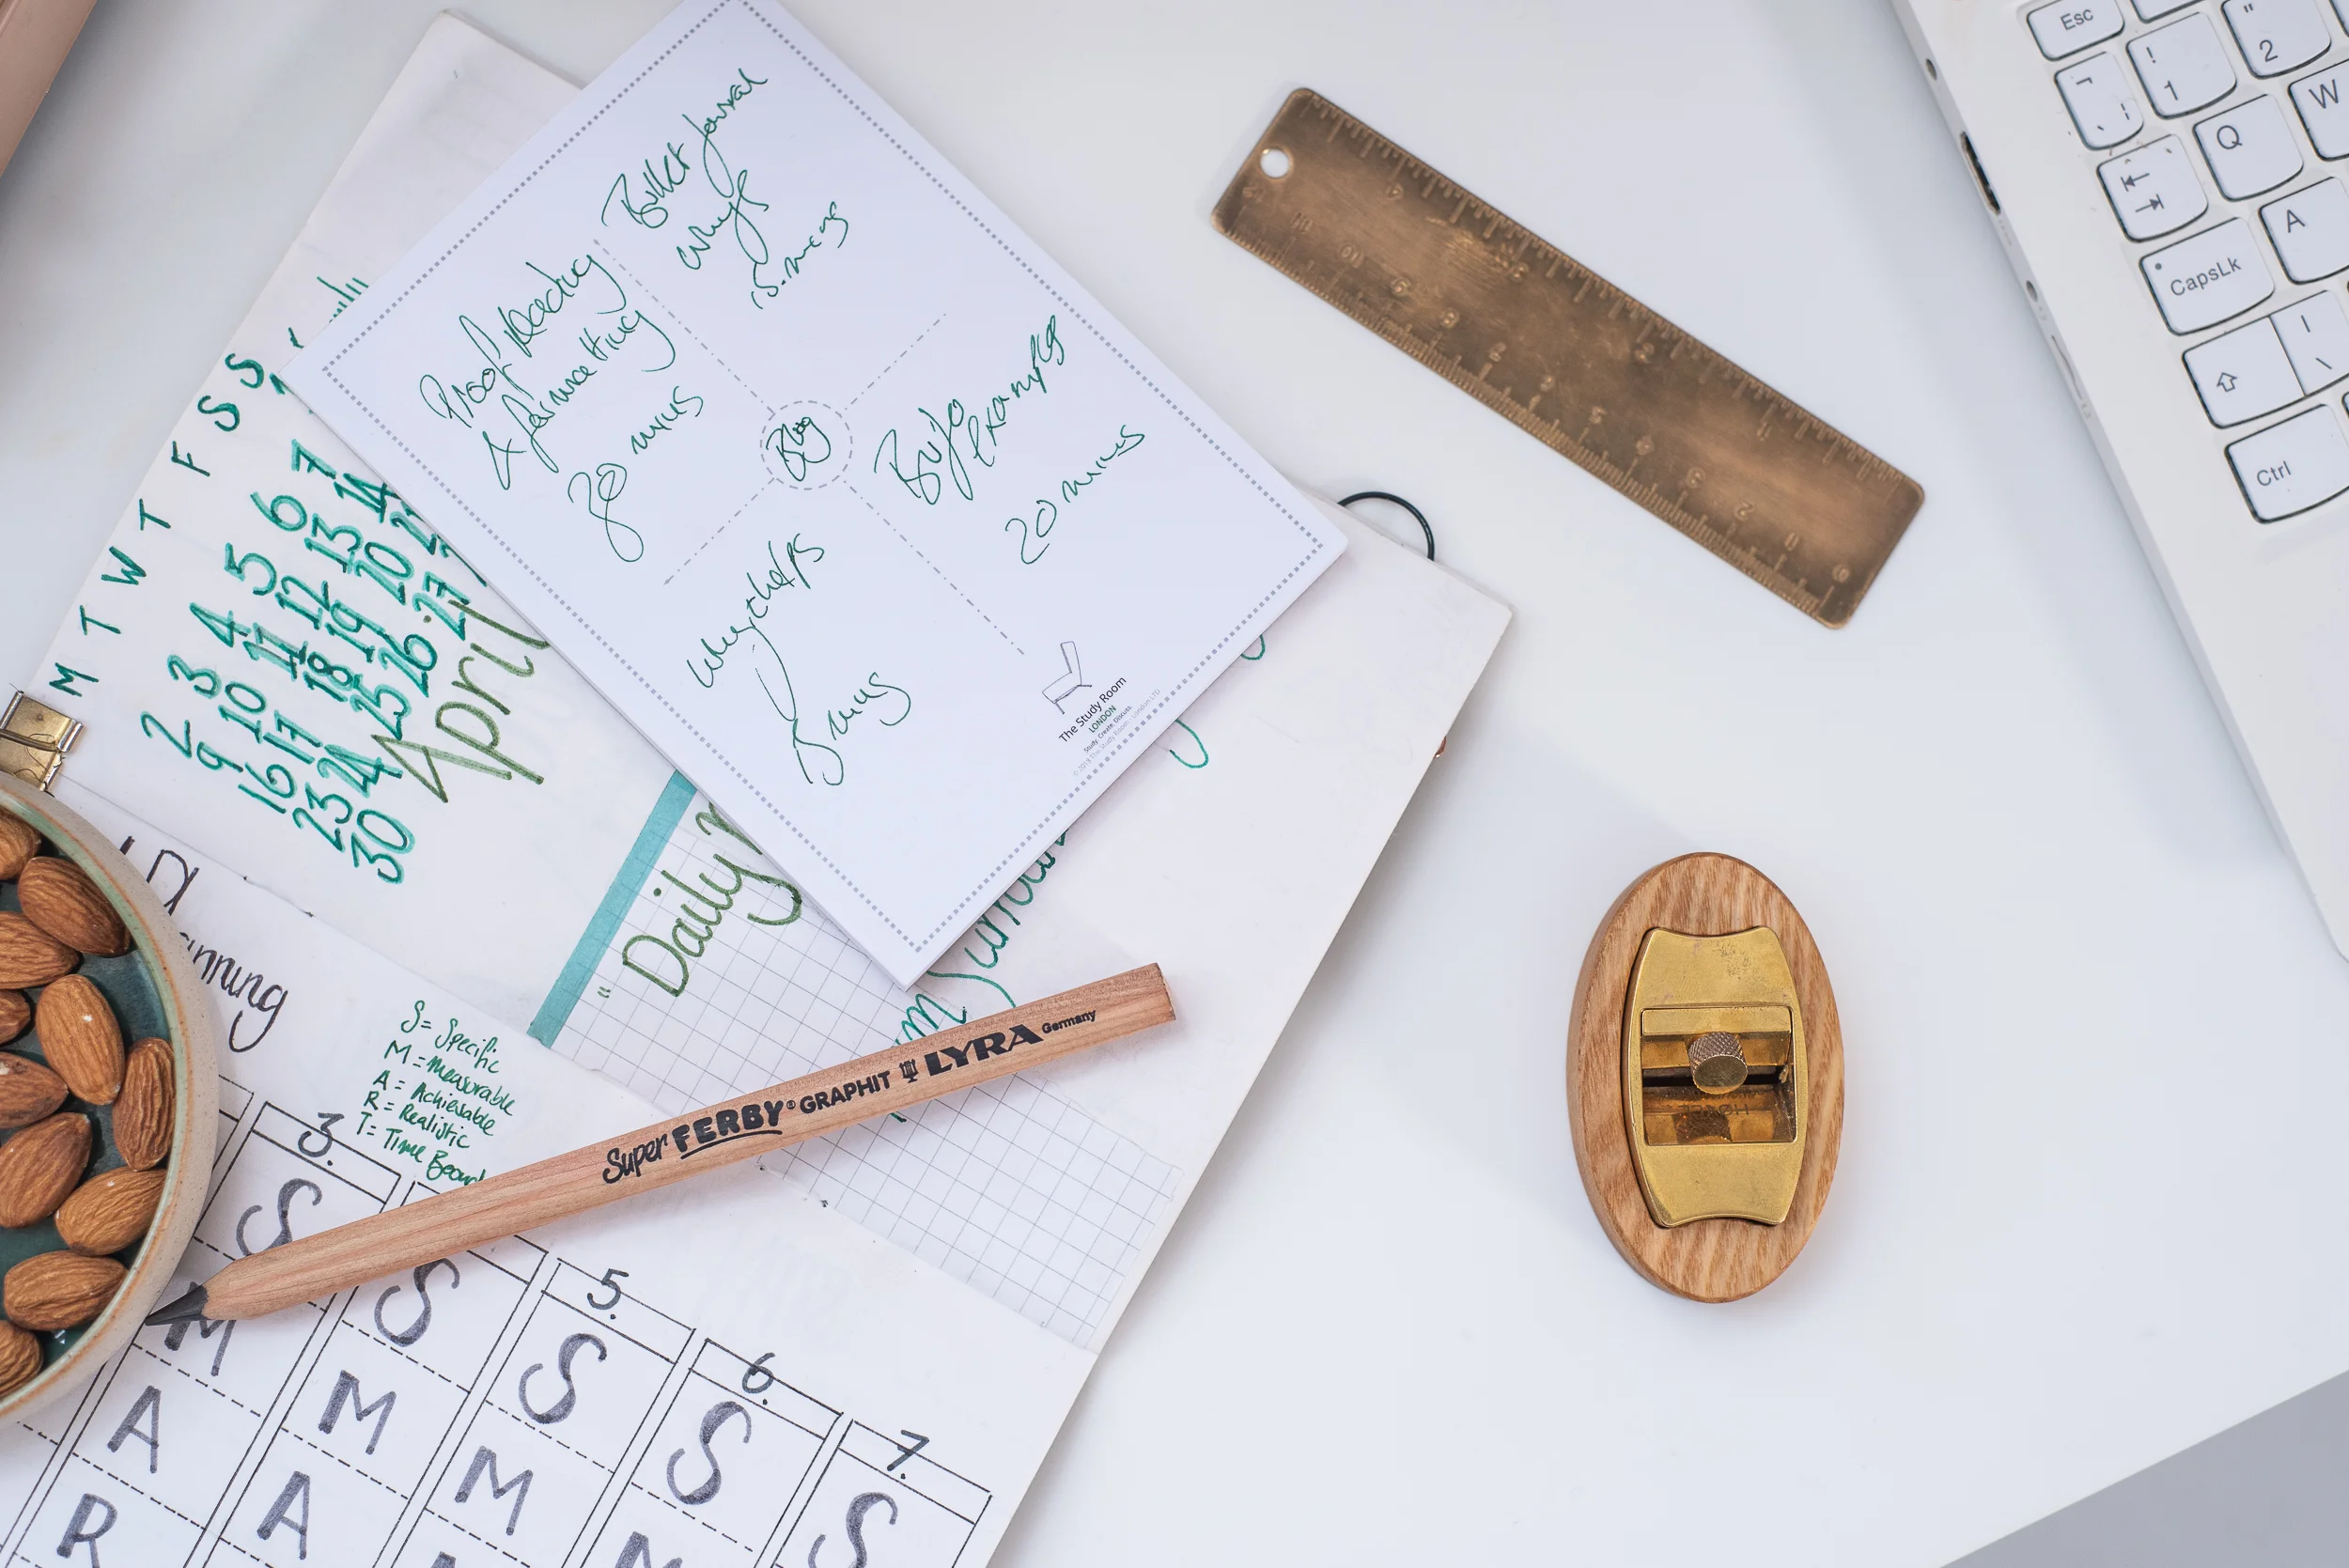 Bullet Journal
Whys
15 mins
Proof Reading
& formatting
30 mins
Blog
Bujo
Examples
20 mins
Why helps
15 mins
The Study Room
LONDON
Study. Create. Discuss
M T W T F S S
2 3 4 5 6 7
9 10 11 12 13 14
16 17 18 19 20 21
23 24 25 26 27
30
April
"Daily
S = Specific
M = measurable
A = Achievable
R = Realistic
T = Time
Super FERBY® GRAPHIT LYRA Germany
3.
5.
6.
7.
S S S S S
M M M M
A A
R
12 11 10 9 8 7 6 5 4 3 2 1 0
Esc
! 1
" 2
Q
W
CapsLk
A
Ctrl